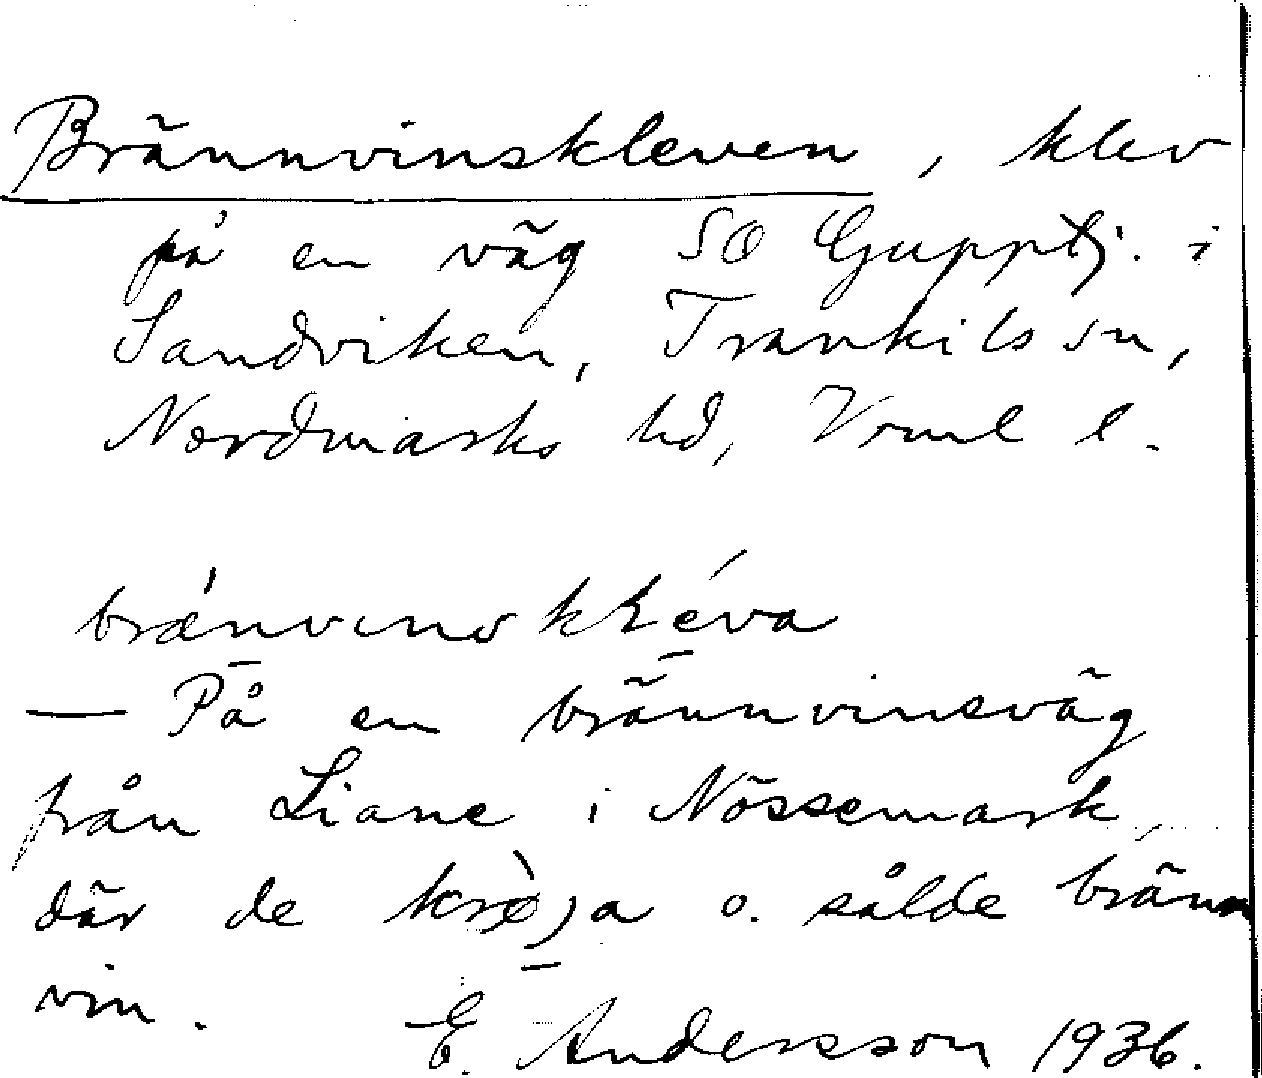 Brännvinskleven, klev
på en väg SO Gupptj. i
Sandviken, Trankils sn,
Nordmarks hd, Vrml l.
brǽnvenskɫéva
— På en brännvinsväg
från Liane i Nössemark,
där de krø̀ja o. sålde bränn
vin.
E. Andersson 1936.